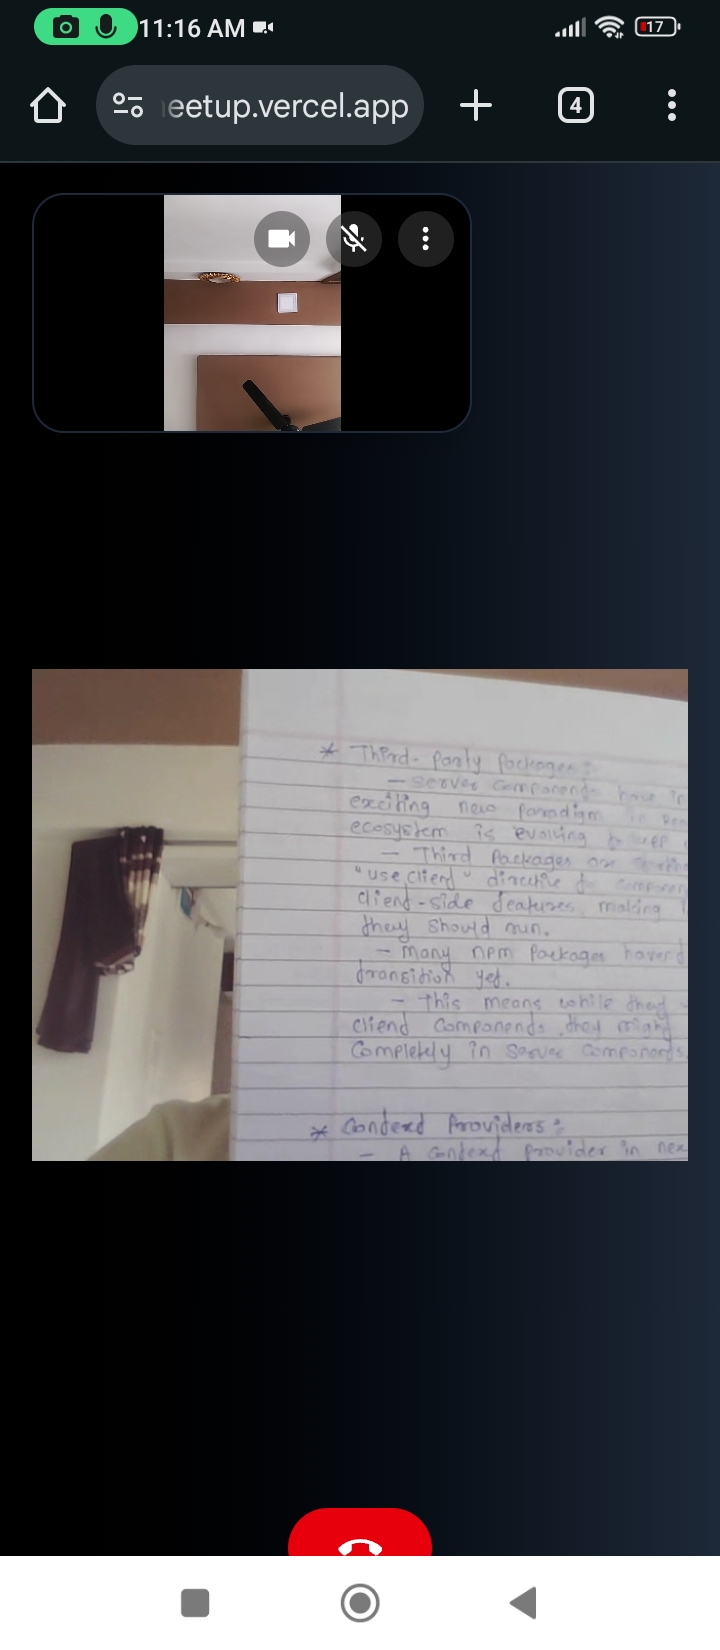 11:16 AM
17
eetup.vercel.app
4
* Third-party packages:
- Server Components have in
exciting new paradigm in Rea
ecosystem is evolving to keep
- Third Packages are starting
"use client" directive to componen
client-side features, making i
they should run.
- many npm Packages haven't
transition yet.
- This means while they
client Components, they might
Completely in Server Components.
* Context Providers:
- A context provider in nex